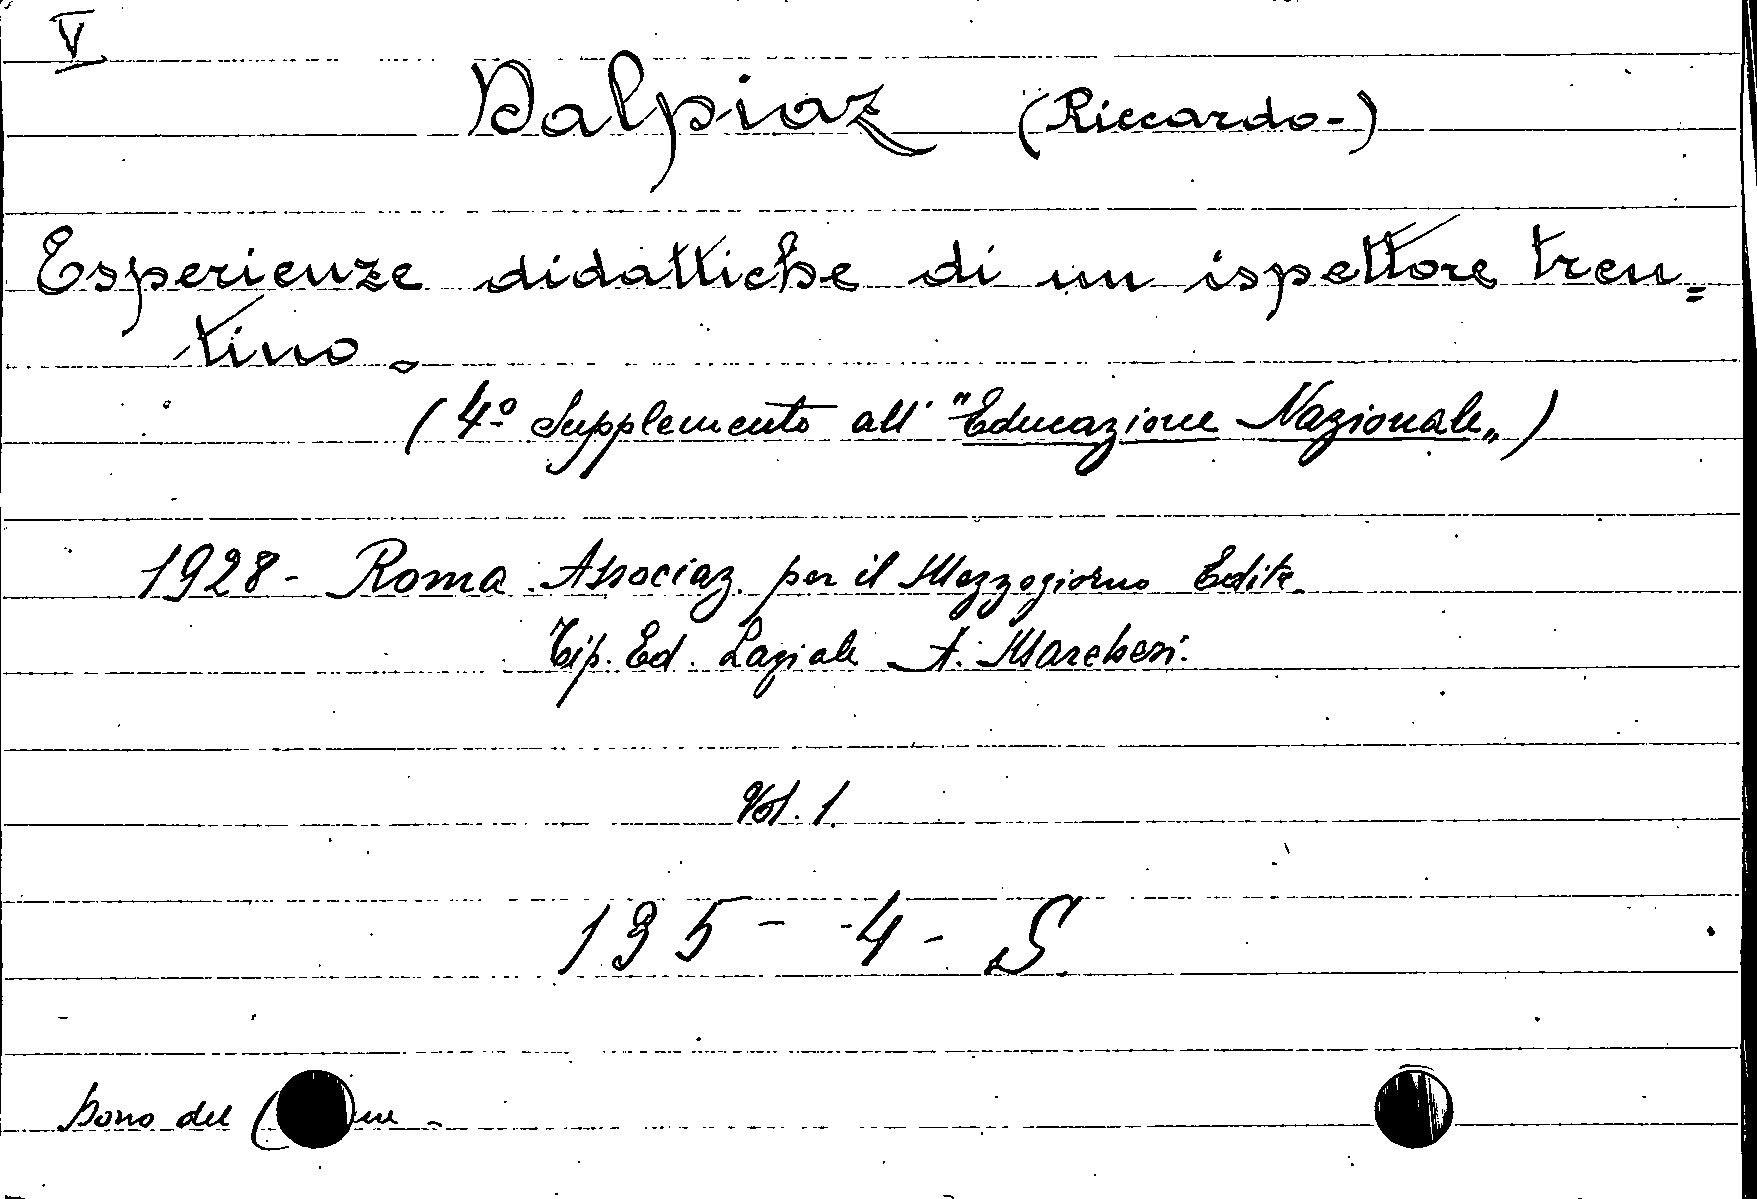 V
Dalpiaz (Riccardo-)
Esperienze didattiche di un ispettore tren=
tino.
(4º Supplemento all' "Educazione Nazionale„)
1928 - Roma. Associaz. per il Mezzogiorno Edit.
Tip. Ed. Laziale A. Marchesi.
Vol. 1.
135 - 4 - S.
Dono del